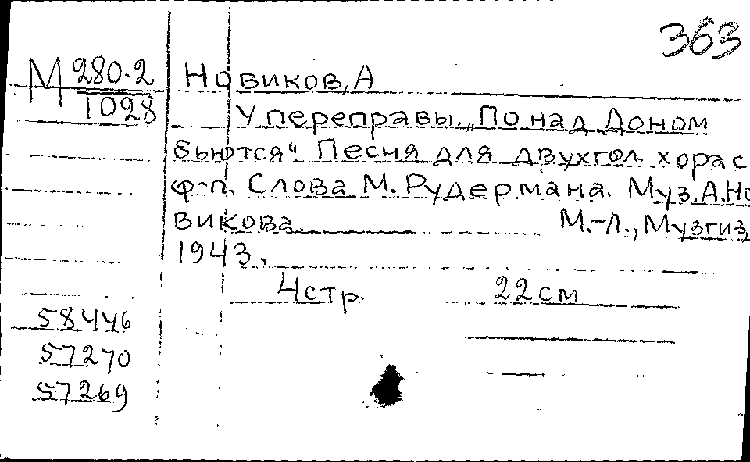 363
М 280-2
1028
Новиков, А
У переправы. „По над Доном
бьются". Песня для двухгол. хора с
ф-п. Слова М. Рудермана. Муз. А. Но
викова. М.-Л., Музгиз,
1943.
4 стр 22 см
58446
57270
57269